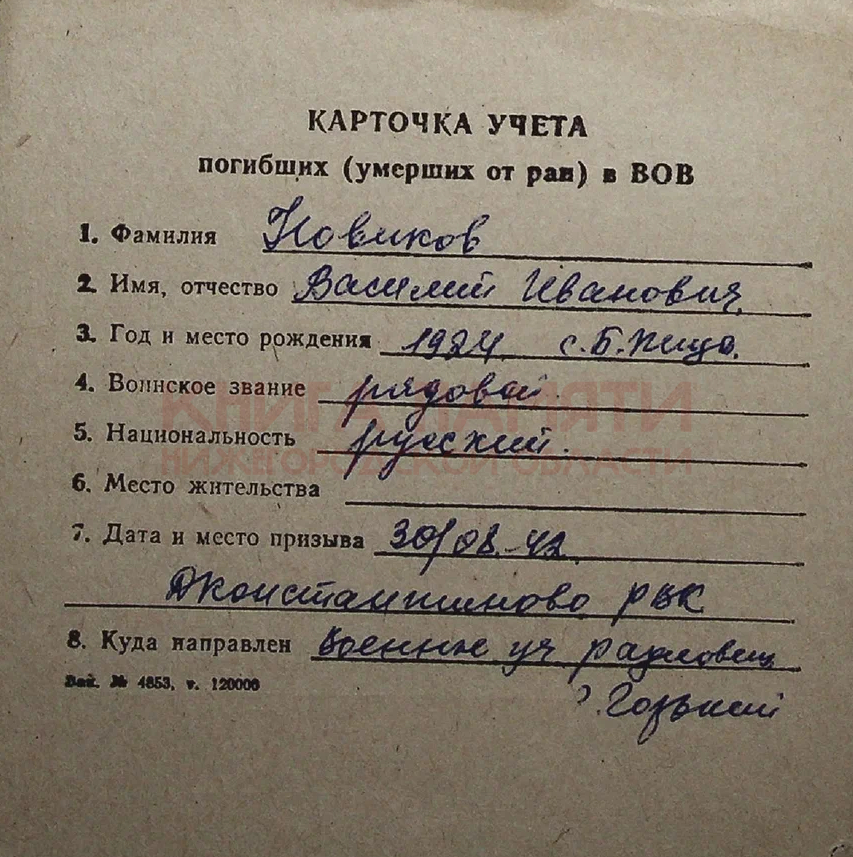 КАРТОЧКА УЧЕТА
погибших (умерших от ран) в ВОВ
1. Фамилия Новиков
2. Имя, отчество Василий Иванович
3. Год и место рождения 1924 с. Б. Пица.
4. Воинское звание рядовой.
КНИГА ПАМЯТИ
5. Национальность русский.
НИЖЕГОРОДСКОЙ ОБЛАСТИ
6. Место жительства
7. Дата и место призыва 30/08-42
Дконстантиново РВК
8. Куда направлен уч
Зак. № 4853, т. 120000
г. Горький